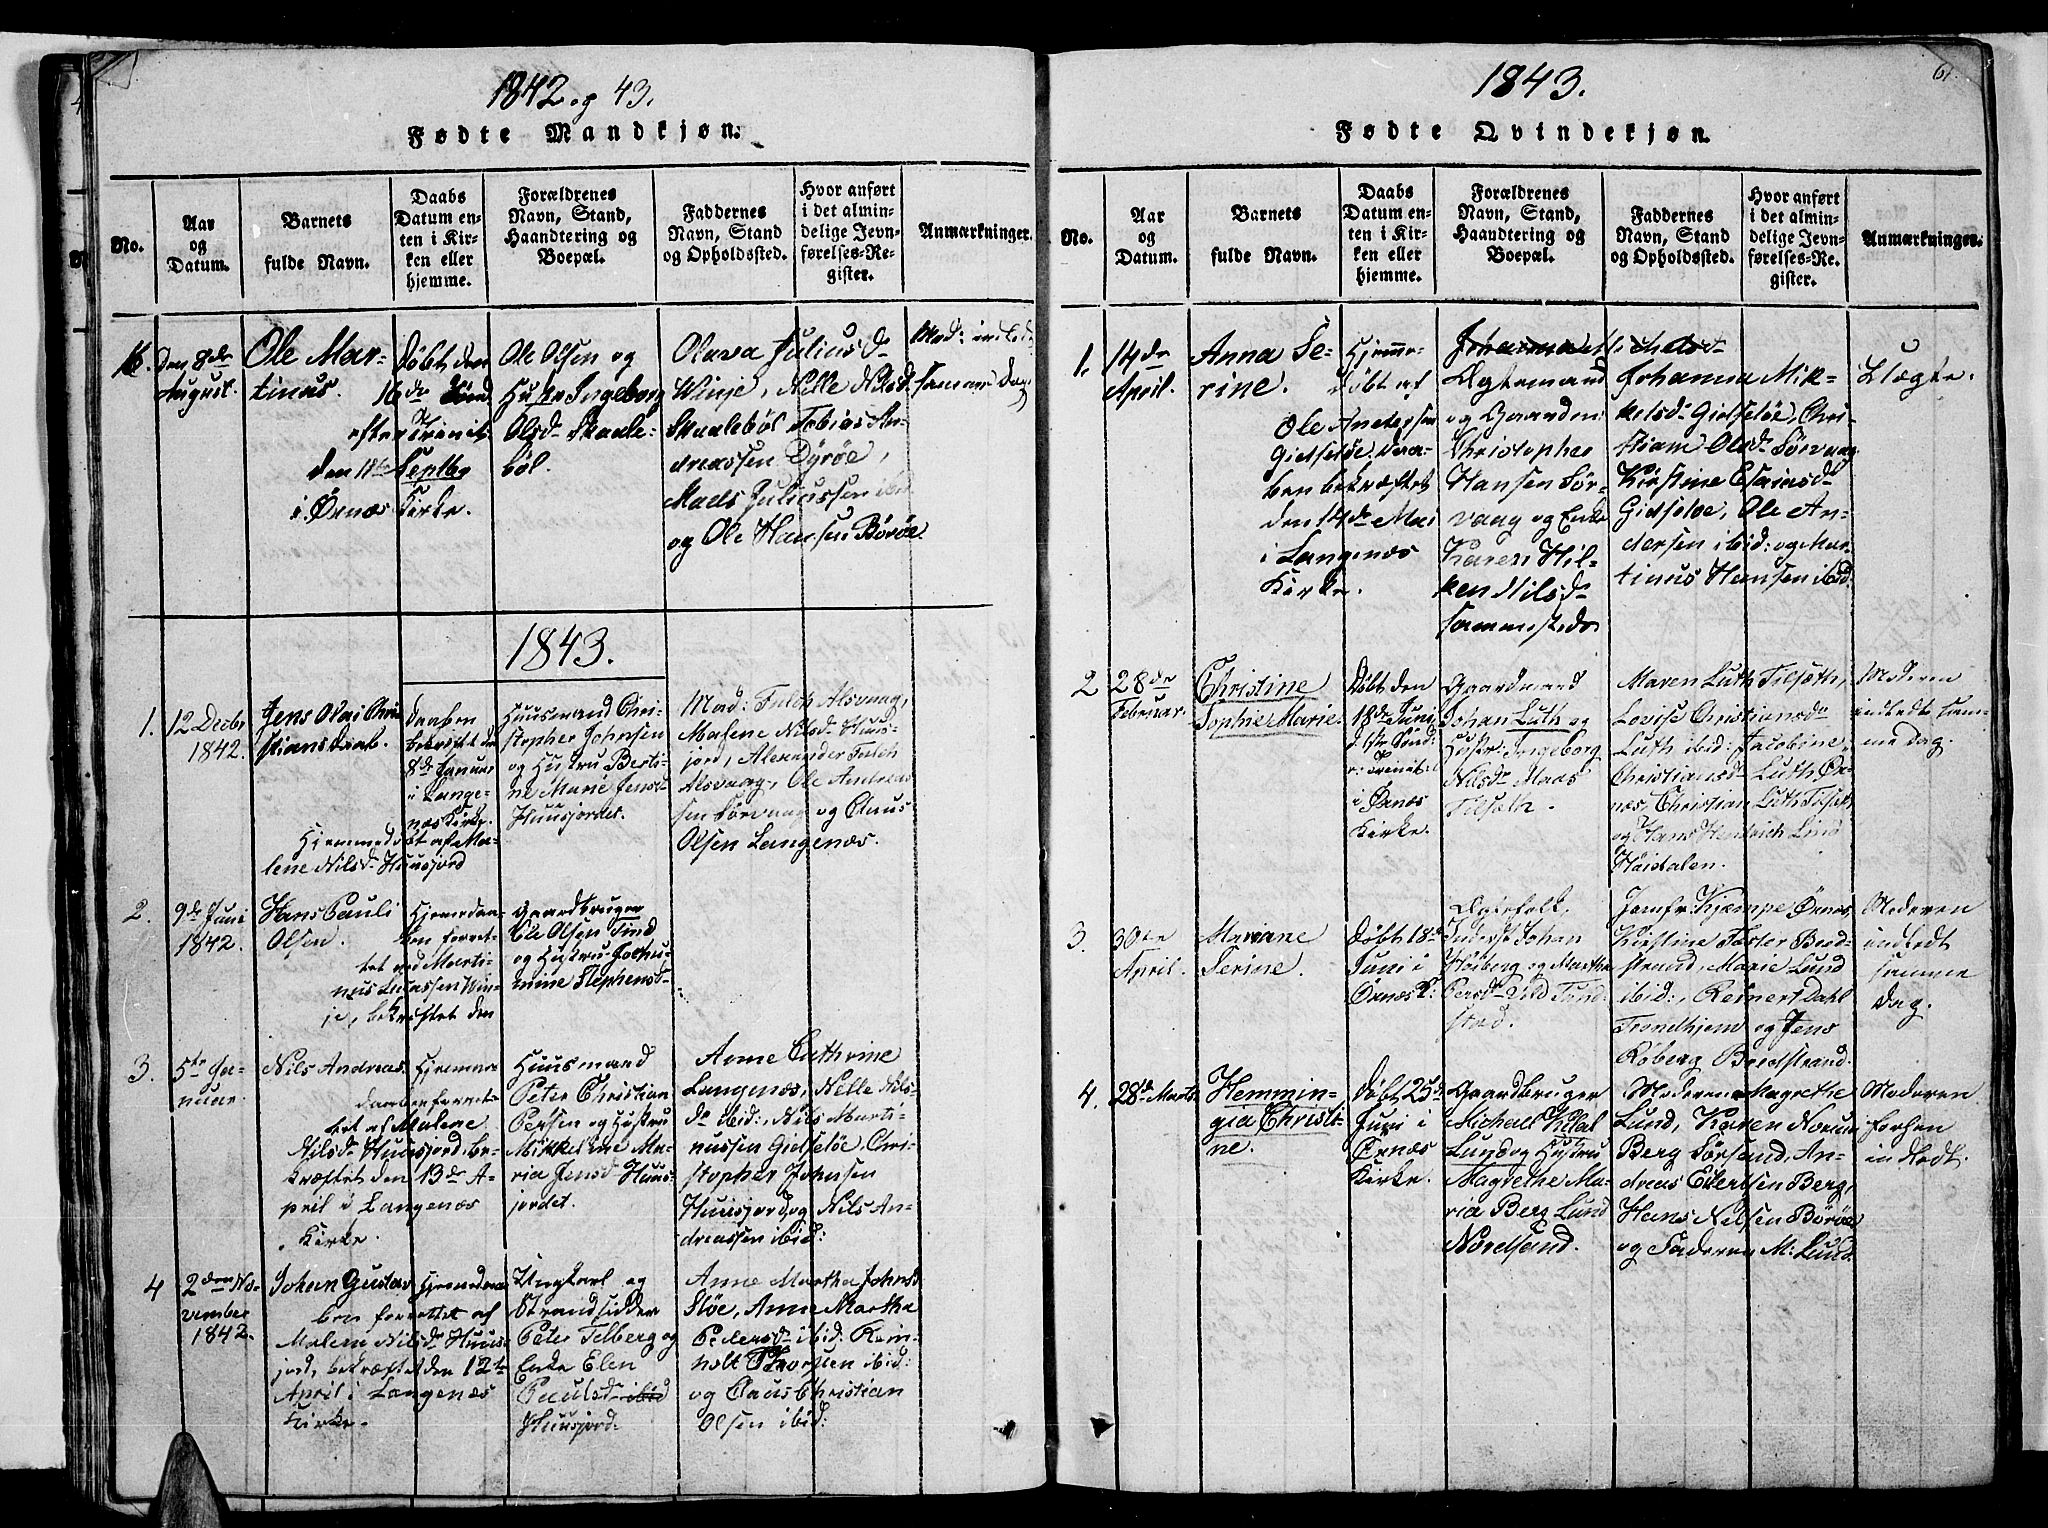 1842 og 43.
Fødte Mandkjøn.
No.
Aar
og
Datum.
Barnets
fulde Navn.
Daabs
Datum en-
ten i Kir-
ken eller
hjemme.
Forældrenes
Navn, Stand,
Haandtering og
Boepæl.
Faddernes
Navn, Stand
og Opholdssted.
Hvor anført
i det almin-
delige Jevn-
førelses-Re-
gister.
Anmærkninger.
16.
Den 8de
August.
Ole Mar-
tinus.
Døbt den
16de Sønd
efter Trinit:
den 11te Septbr
i Ørnæs Kirke.
Ole Olsen og
Hustr Ingeborg
Olsdr Skaale-
böl.
Olava Juliusdr
Winje, Nille Nilsdr
Skaaleböl Tobias An-
dreassen Dyrøe,
Mads Juliussen ibid
og Ole Hansen Börøe
Mod: intod
samme Dag.
1843.
1.
12 Decbr
1842.
Jens Olai Chri-
stian
Daaben
bekræftet d
8de Januar
i Lange-
næs Kirke.
Hjemmedöbt af Ma-
lene Nilsdr Huusjord
Huusmand Chri-
stopher Johnsen
og Hustru Berti-
ne Marie Jens
Huusjordet.
Mad: Falch Alsvaag,
Malene Nilsdr Huus-
jord, Alexander Falch
Alsvaag, Ole Andreas
sen Sørvaag og Claus
Olsen Langenæs.
2.
9de Juni
1842.
Hans Pauli
Olsen.
Hjemedaa-
ben forret-
tet ved Marti-
nus Lucassen Win-
je, bekræftet den
Gaardbruger
Ole Olsen Tind
og Hustru Jochu-
mine Stephensdr
3.
5te Ja-
nuar.
Nils Andreas.
Hjemme
daaben forret-
tet af Malene
Nilsdr Huusjord, be-
kræftet den 13de A-
pril i Langenæs
Kirke.
Huusmand
Peter Christian
Persen og Hustru
Mikkeline Ma-
ria Jensdr Huus-
jordet.
Anne Cathrine
Langenæs, Nille Nils-
dr ibid:, Nils Marti-
nussen Gidseløe, Chri-
stopher Johnsen
Huusjord og Nils An-
dreassen ibid:
4
2den No-
vember
1842.
Johan Gustav
Hjemedaa-
ben forrettet af
Malene Nilsdr Huus-
jord, bekræftet den 12te
April i Langenæs
Kirke.
Ungkarl og
Strandsidder
Peter Felberg og
Enke Elen
Paulsdr ibid
Huusjord.
Anne Martha Johnsd
Skøe, Anne Martha
Pedersdr ibid: Rein-
holt Thorsen ibid:
og Claus Christian
Olsen ibid:
1843.
61.
Fødte Qvindekjøn.
No.
Aar
og
Datum.
Barnets
fulde Navn.
Daabs
Datum en-
ten i Kir-
ken eller
hjemme.
Forældrenes
Navn, Stand,
Haandtering og
Boepæl.
Faddernes
Navn, Stand
og Opholdssted.
Hvor anført
i det almin-
delige Jevn-
førelses-Re-
gister.
Anmærkninger.
1.
14de
April.
Anna Se-
rine.
Hjemme-
døbt af
Ole Andersen
Gidseløe, Daa-
ben bekræftet
den 14de Mai
i Langenæs
Kirke.
Johanna Michelsdr
Christopher
Hansen Sør-
vaag og Enke
Karen Hil-
ken Nilsdr
sammesteds
Johanna Mik-
kelsdr Gidseløe, Chri-
stiane Olsdr Sørvaag
Kirstine Esaiasdr
Gidseløe, Ole An-
dersen ibid: og Mar-
tinus Hansen ibid.
Uægte.
2
28de
Februar.
Christine
Sophie Marie.
Døbt den
18de Juni
1ste Sønd:
e. Trinit:
i Ørnæs
Kirke.
Gaardmand
Johan Luth og
Hustr: Ingeborg
Nilsdr Maas
Tilseth.
Maren Luth Tilseth,
Lovise Christiansdr
Luth ibid: Jacobine
Christiansdr Luth Ør-
næs, Christian Luth Tilseth
og Hans Hendrich Lind
Höidalen.
Moderen
indledt sam-
me Dag.
3.
30te
April.
Mariane
Serine.
Døbt 18de
Juni i
Ørnæs K:
Ægtefolk,
Inderst Johan
Høiberg og Martha
Persdr
stad.
Jomfr: Kjempe Ørnæs
Kirstine Foster Bred-
strand, Marie Lund
ibid:, Reinert Dahl
Trondhjem og Jens
Röberg Bredstrand.
Moderen
indledt
samme
Dag.
4.
28de Marts
Hemmin-
gia Christi-
ne.
Døbt 25de
Juni i
Ørnæs
Kirke.
Gaardbruger
Michael
Lund og Hustru
Magrethe Ma-
ria Berg Lund
Nordsand.
Moderen Magrethe
Lund, Karen Norum
Berg Sørsand, An-
dreas Eilertsen Berg,
Hans Nilsen Börøe
og Faderen M: Lund.
Moderen
forhen
indledt.